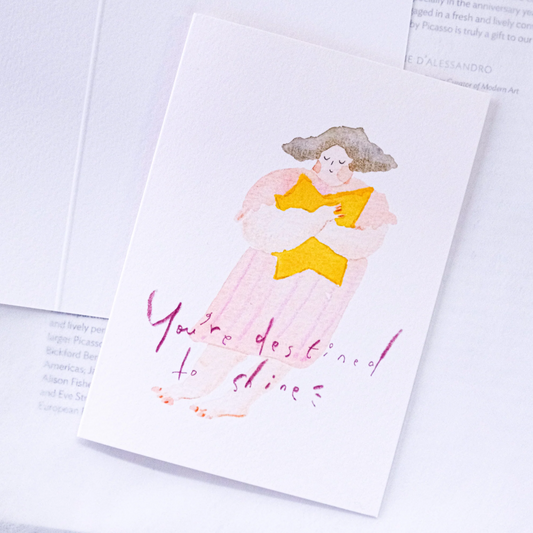 ially in the anniversary yea
aged in a fresh and lively con
by Picasso is truly a gift to our
E D'ALESSANDRO
Curator of Modern Art
You're destined
to shine
and lively per
Sergei Picasso
Bickford Ber
Americas; Ji
Alison Fishe
and Eve Str
European